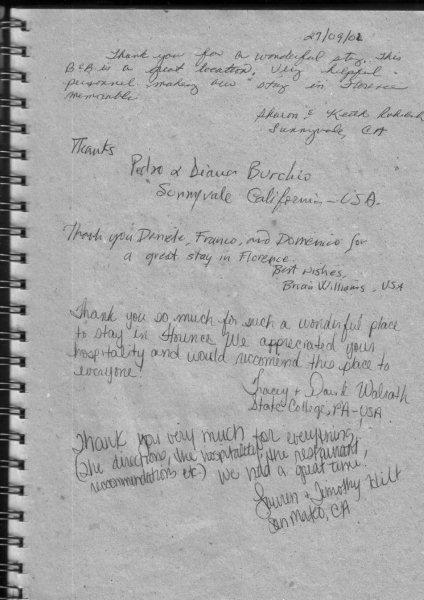 27/09/01
Thank you for a wonderful stay. This
B&B is a great location. Very helpful
personnel making our stay in Florence
memorable.
Sharon & Keith
Sunnyvale, CA
Thanks
Pedro & Diana Burchio
Sunnyvale California - USA.
Thank you Daniele, Franco, and Domenico for
a great stay in Florence.
Best Wishes,
Brian Williams, USA
Thank you so much for such a wonderful place
to stay in Florence. We appreciated your
hospitality and would recomend this place to
everyone
Tracey + David Walrath
State College, PA - USA
Thank you very much for everything
(the directions, the hospitality, the restaurant,
recommendations etc) we had a great time.
Lauren + Timothy Hilt
San Mateo, CA